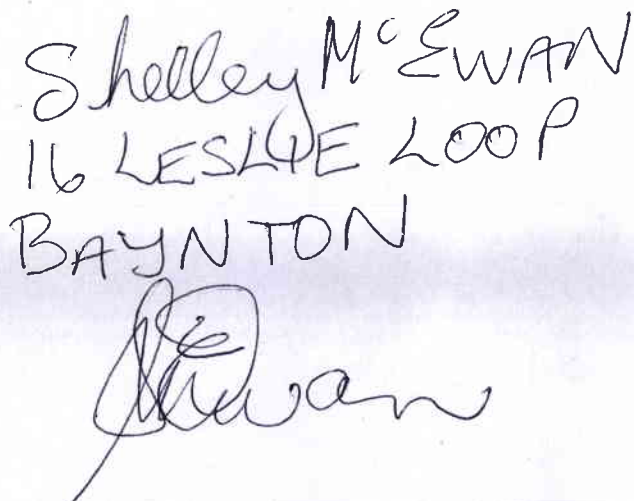 Shelley McEWAN
16 LESLIE LOOP
BAYNTON
SMcEwan